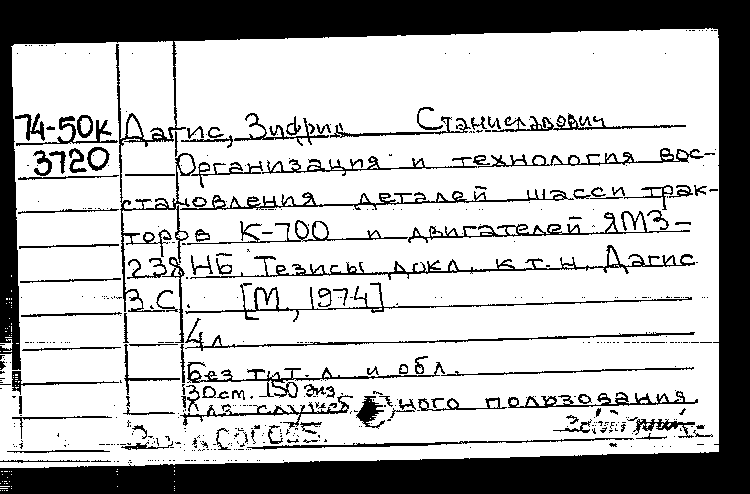 74-50к Дагис, Зифрид Станиславович
3720 Организация и технология вос-
становления деталей шасси трак-
торов К-700 и двигателей ЯМЗ-
238НБ. Тезисы докл. к.т.н. Дагис
З.С. [М., 1974]
4 л.
Без тит. л. и обл.
150 экз.
Для служебного пользования